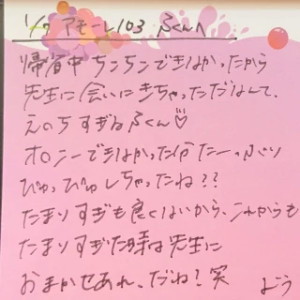 1/7 アモーレ103 ふくんへ
帰省中チンチンできなかったから
先生に会いにきちゃっただなんて、
えのちすぎるふくん♡
オロニーできなかった分たーっぷり
ぴゅっぴゅしちゃったね??
たまりすぎも良くないから、これからも
たまりすぎた時は先生に
おまかせあれ、だね!笑
よう